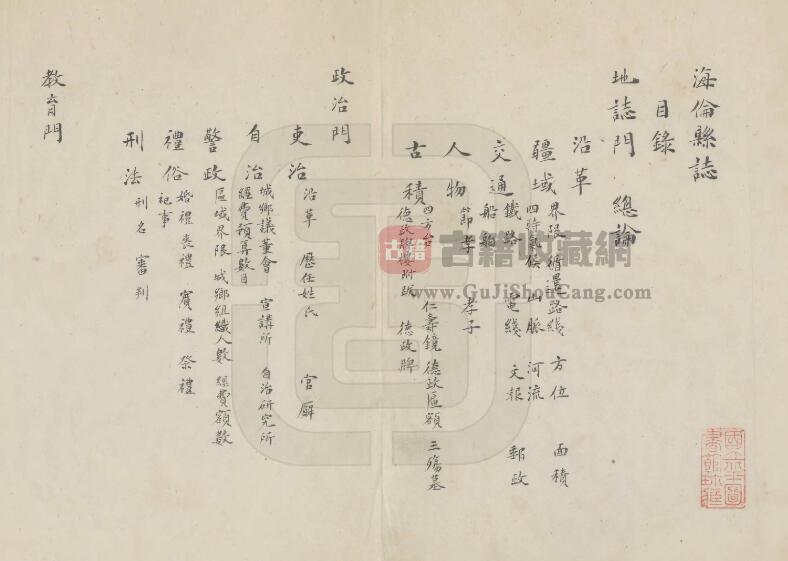 海倫縣誌
目錄
地誌門 總論
沿革
疆域 界限 循遶路綫 方位 面積
四時氣候 山脈 河流
交通 鐵路 電綫 文報 郵政
船舶
人物 節孝 孝子
古積 四方台 仁壽鏡 德政區額 三殤墓
德氏 德政牌
政治門
吏治 沿革 歷任姓氏 官廨
自治 城鄉議董會 宣講所 自治研究所
經費預算數目
警政 區域界限 城鄉組織人數 經費額數
禮俗 婚禮 喪禮 賓禮 祭禮
祀事
刑法 刑名 審判
教育門
古籍
古籍收藏網
www.GuJiShouCang.com